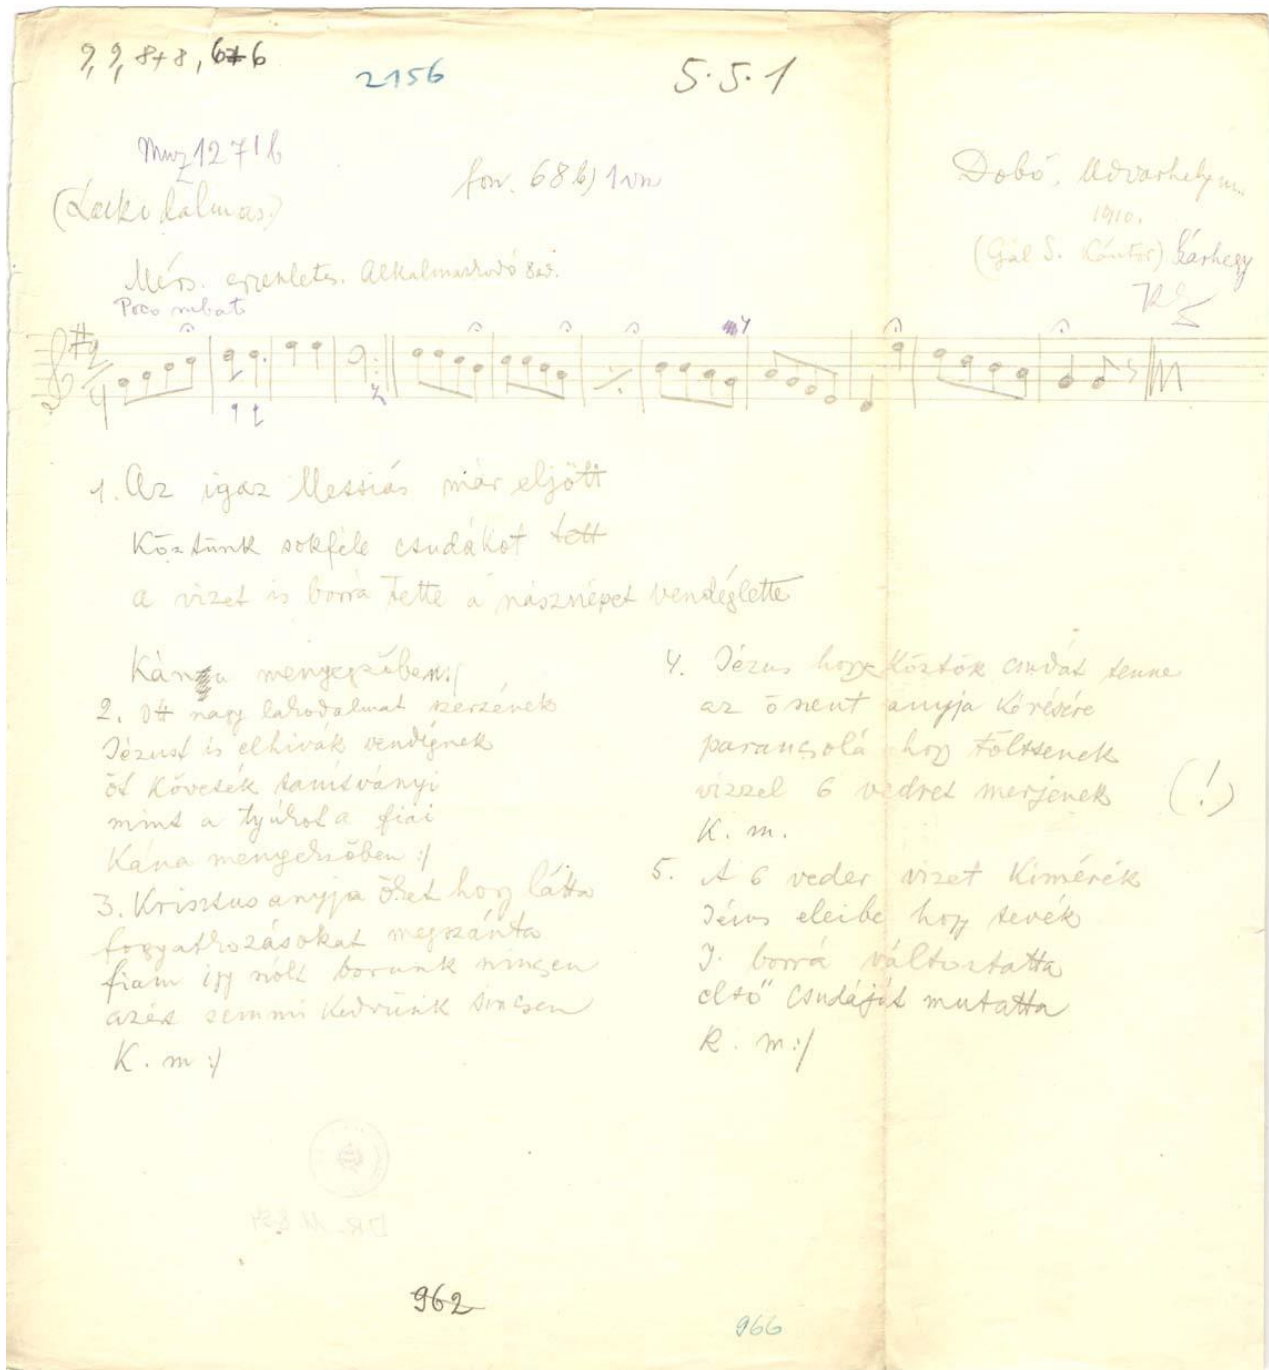 9, 9, 8+8, 6+6
2156
5.5.1
Muz 1271 b
fon. 68 b) 1 vn
Dobó, Udvarhely m.
1910.
(Laki dalmas)
(Gál S. kántor) Szárhegy
Mérs. Alkalmazkodó
Poco rubato
1. Az igaz Messiás már eljött
Köztünk sokféle csudákot tett
a vizet is borrá tette a násznépet vendéglette
Kána menyegzőben :/
2. Ott nagy lakodalmat szerzének
Jézust is elhívák vendégnek
őt követék tanítványi
mint a tyúkot a fiai
Kána menyekzőben :/
3. Krisztus anyja őket hogy látta
fogyatkozásokat megszánta
fiam így szólt borunk nincsen
azér semmi kedvünk sincsen
K. m :/
4. Jézus hogy köztök csudát tenne
az ő szent anyja kérésére
parancsolá hogy töltsenek
vizzel 6 vedret merjenek (!)
K. m.
5. A 6 veder vizet kimérék
Jézus eleibe hogy tevék
J. borrá változtatta
első csudáját mutatta
K. m :/
962
966